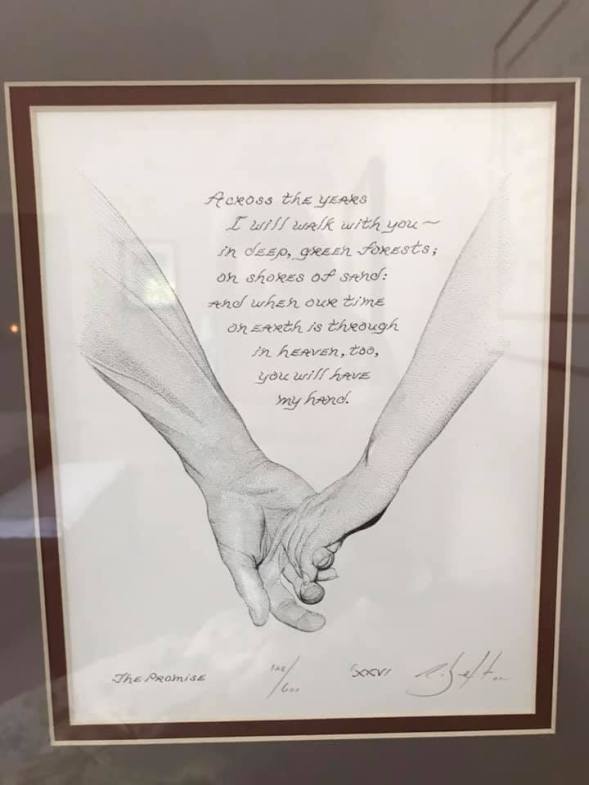 Across the years
I will walk with you ~
in deep, green forests;
on shores of sand:
and when our time
on earth is through
in heaven, too,
you will have
my hand.
The Promise
/600